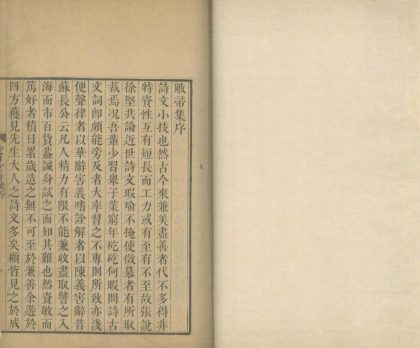 敝帚集序
詩文小技也然古今來兼美盡善者代不多得非
特資性互有短長而工力或有至有不至故張說
徐堅共論近世詩文瑕瑜不掩使傲慕者有所取
裁焉况吾輩少習舉子業窮年矻矻何暇問詩古
文詞卽頗能旁及者大率習之不專則所致亦淺
便聲律者以華辭害義嗜詮解者以陳義害辭昔
蘇長公云凡人精力有限不能兼收盡取譬之入
海而市百貨葢誠身試之而知其難也然資敏而
篤好者積日累歲造之無不可至於兼善余遊於
四方獲見先生大人之詩文多矣顧皆見之於成